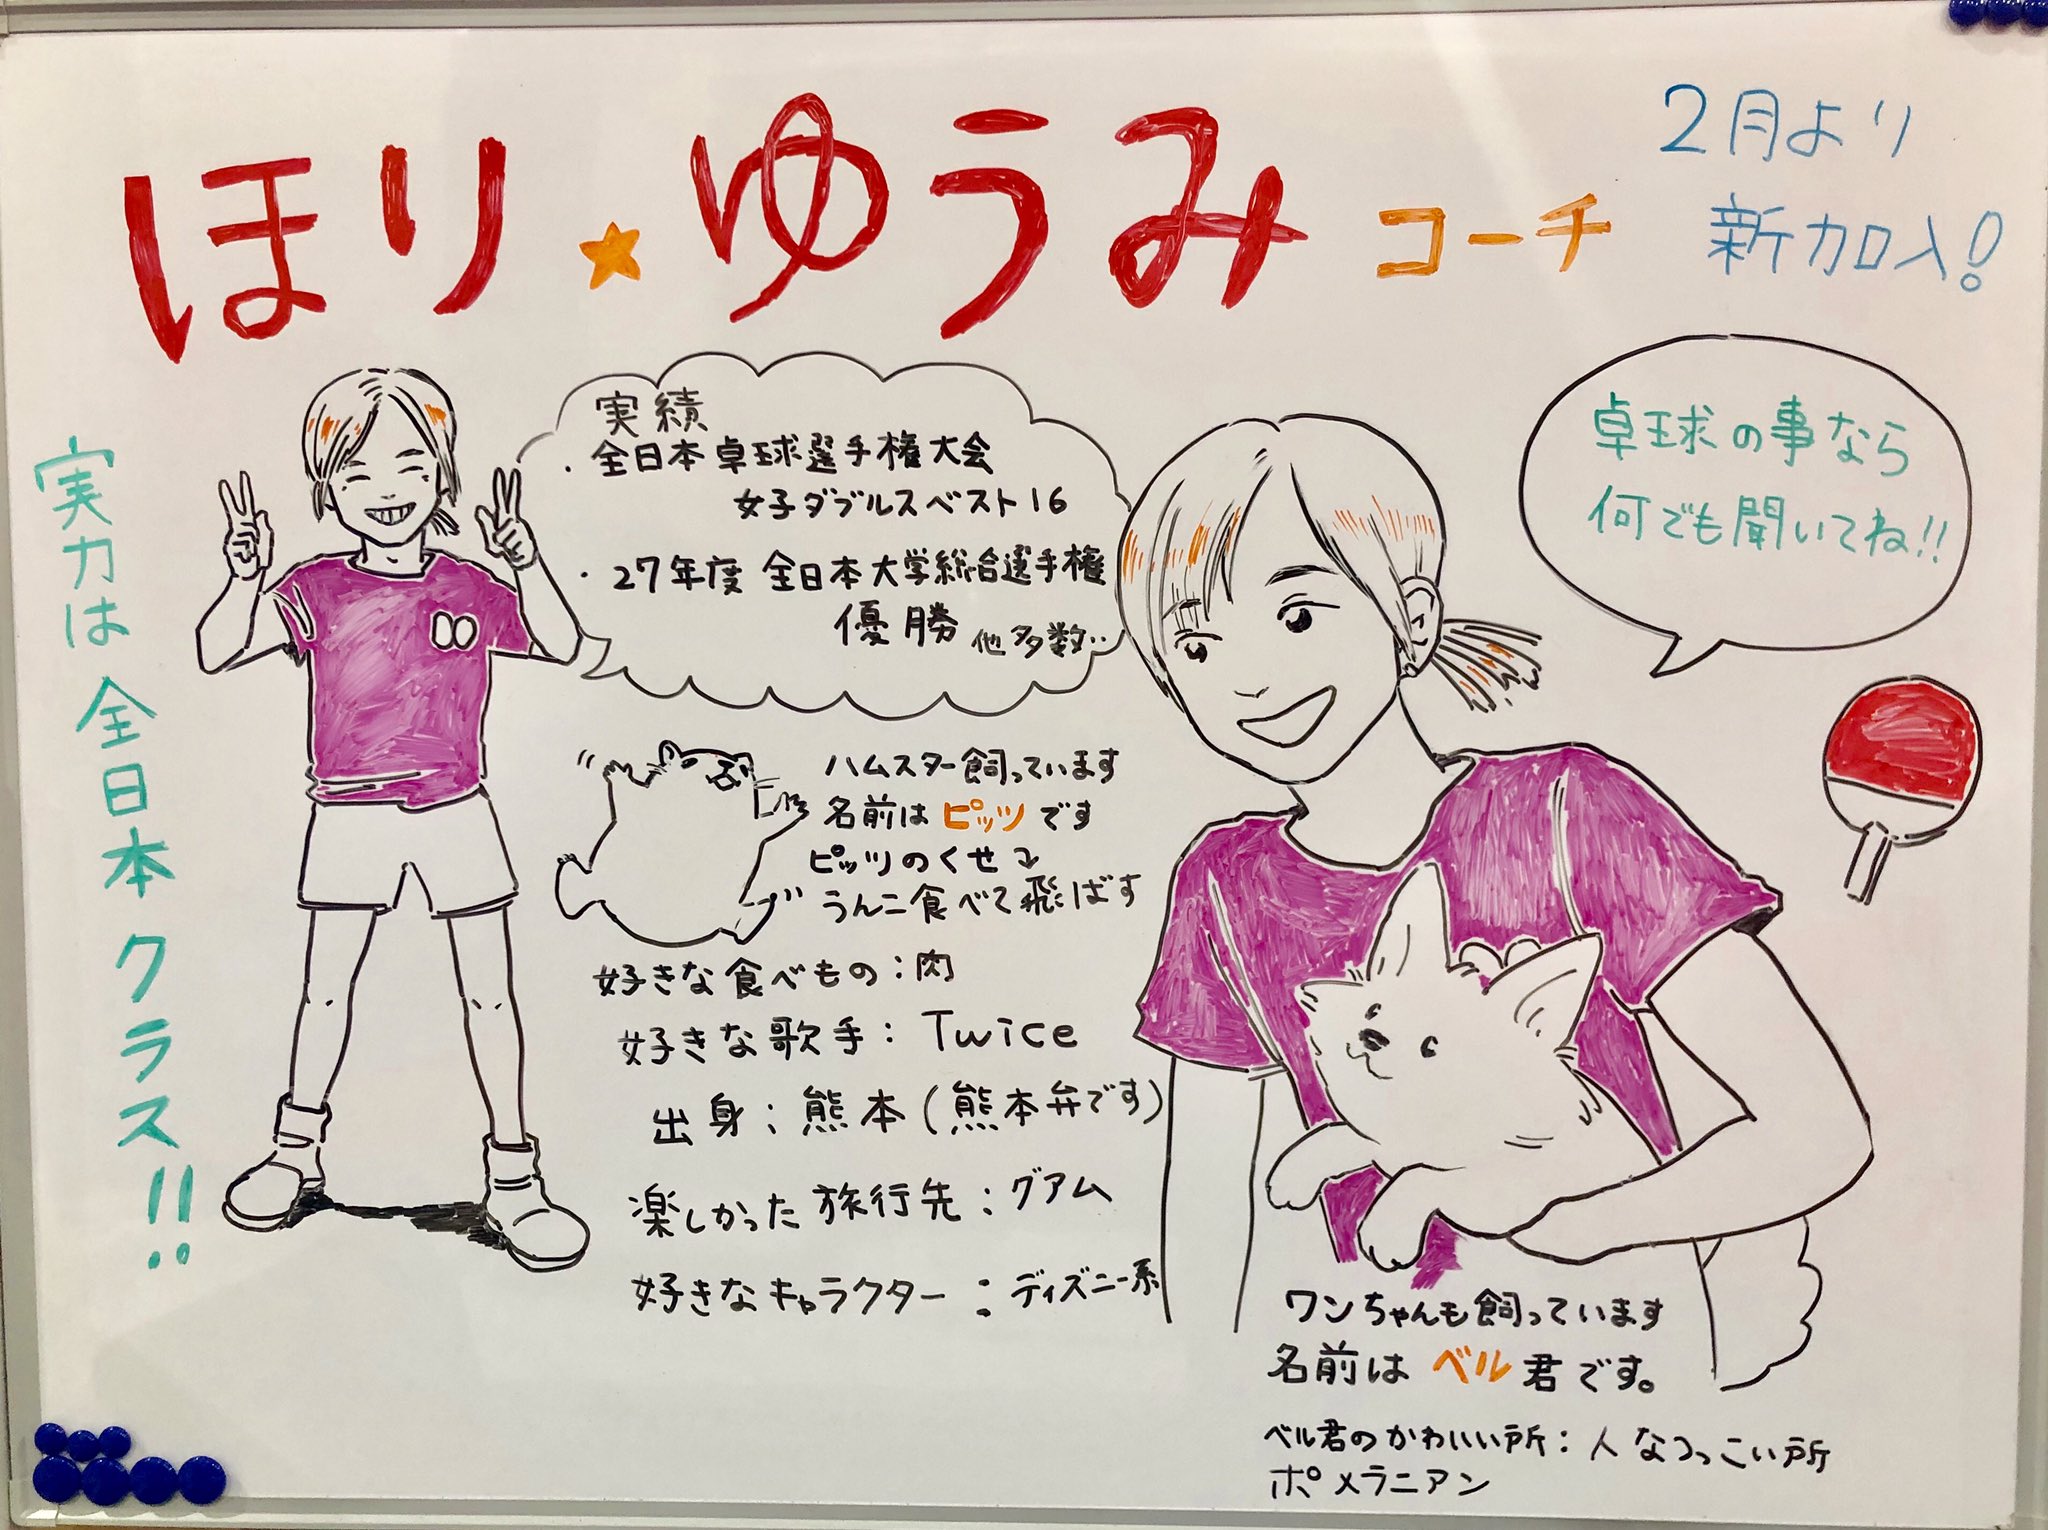 ほり★ゆうみ コーチ
2月より
新加入!
実力は全日本クラス!!
実績
・全日本卓球選手権大会
女子ダブルスベスト16
・27年度 全日本大学総合選手権
優勝 他多数‥
卓球の事なら
何でも聞いてね!!
ハムスター飼っています
名前はピッツです
ピッツのくせ↴
うんこ食べて飛ばす
好きな食べもの:肉
好きな歌手:Twice
出身:熊本(熊本弁です)
楽しかった旅行先:グアム
好きなキャラクター:ディズニー系
ワンちゃんも飼っています
名前はベル君です。
ベル君のかわいい所:人なつっこい所
ポメラニアン